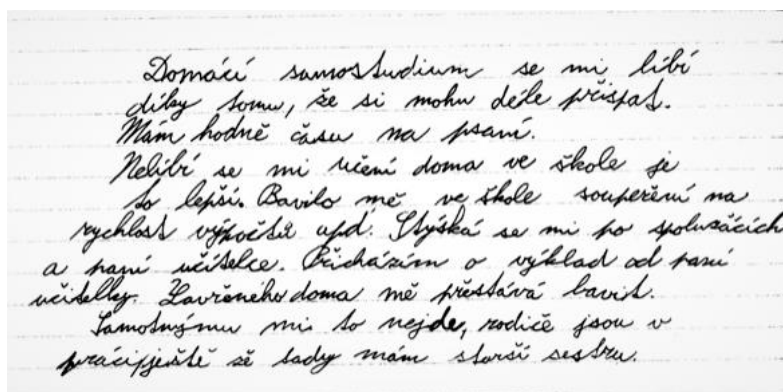 Domácí samostudium se mi líbí
díky tomu, že si mohu déle přispat.
Mám hodně času na psaní.
Nelíbí se mi učení doma ve škole je
to lepší. Bavilo mě ve škole soupeření na
rychlost výpočtů apd. Stýská se mi po spolužácích
a paní učitelce. Přicházím o výklad od paní
učitelky. Zavřeného doma mě přestává bavit.
Samotnýmu mi to nejde, rodiče jsou v
práci ještě se tady mám starší sestru.